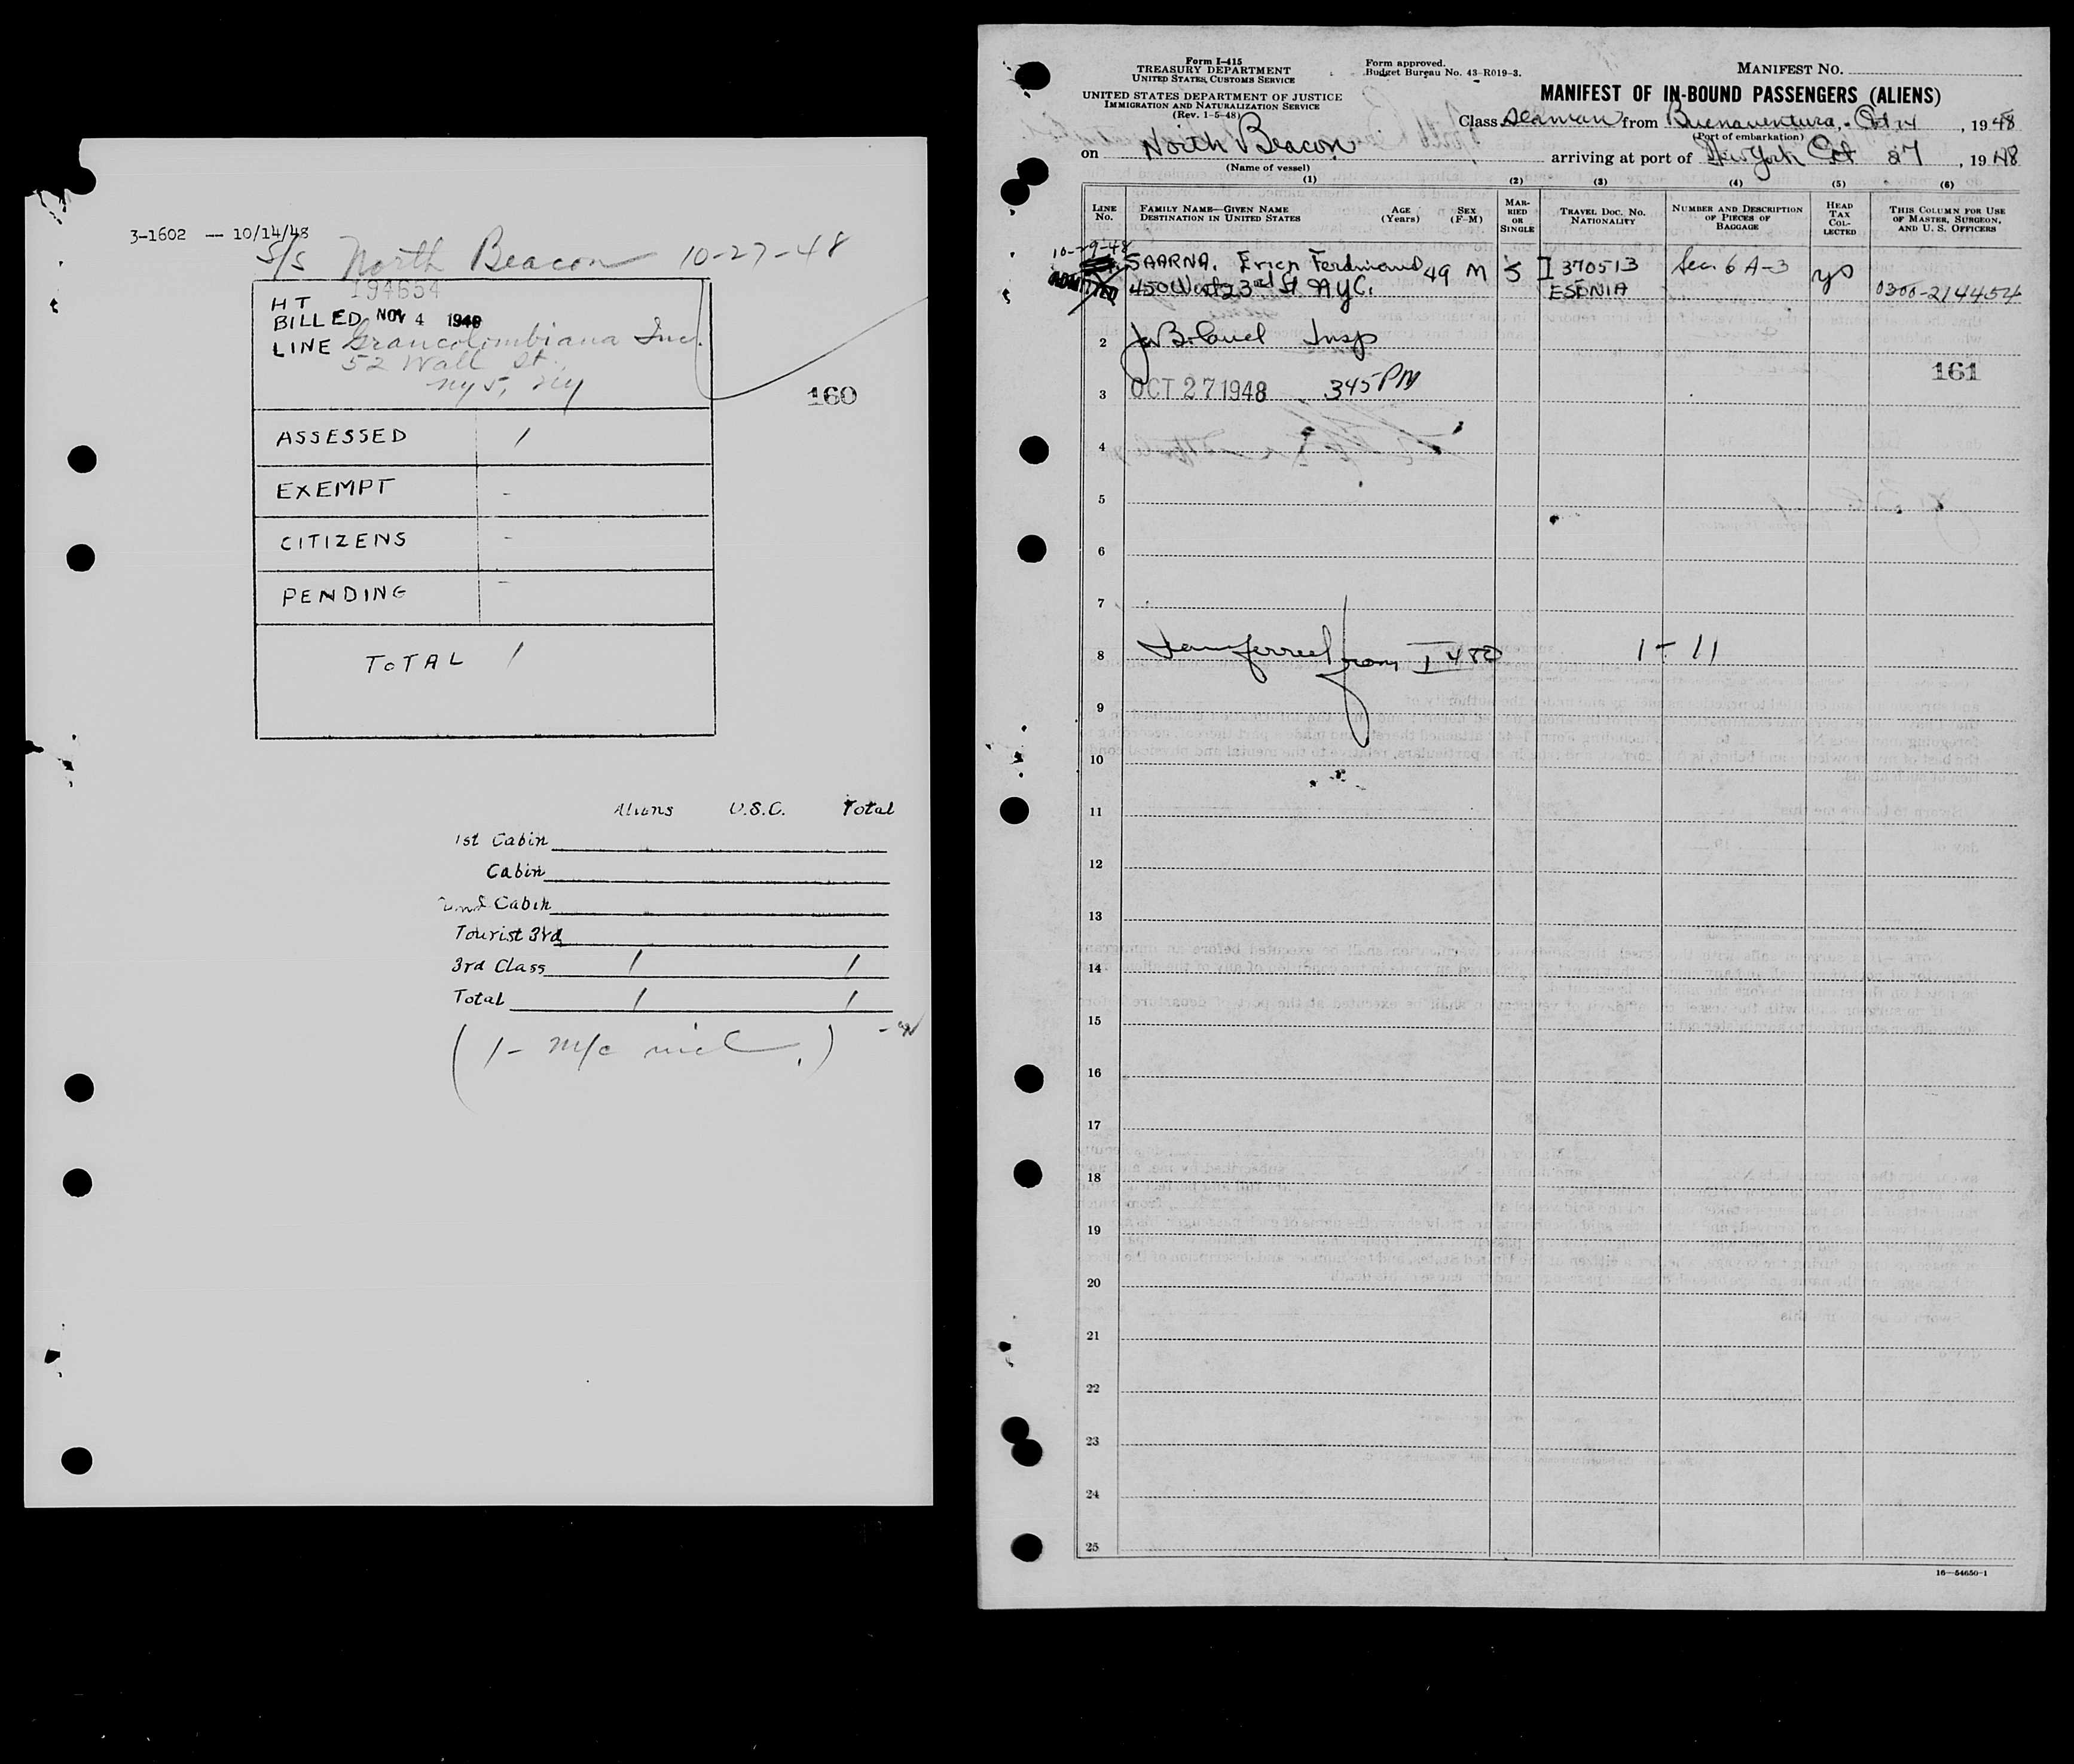 3-1602 -- 10/14/48
S/S North Beacon 10-27-48
194654
HT
BILLED NOV 4 1948
LINE Grancolombiana Inc.
52 Wall St.
NY 5, NY
160
ASSESSED 1
EXEMPT -
CITIZENS -
PENDING -
TOTAL 1
Aliens U.S.C. Total
1st Cabin
Cabin
Cabin
Tourist 3rd
3rd Class 1 1
Total 1 1
(1- m/c
Form I-415
TREASURY DEPARTMENT
UNITED STATES CUSTOMS SERVICE
UNITED STATES DEPARTMENT OF JUSTICE
IMMIGRATION AND NATURALIZATION SERVICE
(Rev. 1-5-48)
Form approved.
Budget Bureau No. 43-R019-3.
MANIFEST NO.
MANIFEST OF IN-BOUND PASSENGERS (ALIENS)
Class Seaman from Buenaventura, Oct 14, 1948
(Port of embarkation)
on North Beacon arriving at port of New York Oct 27, 1948
(Name of vessel)
(1) (2) (3) (4) (5) (6)
LINE No.
FAMILY NAME—GIVEN NAME
DESTINATION IN UNITED STATES
AGE (Years)
SEX (F-M)
MARRIED OR SINGLE
TRAVEL DOC. NO. NATIONALITY
NUMBER AND DESCRIPTION OF PIECES OF BAGGAGE
HEAD TAX COLLECTED
THIS COLUMN FOR USE OF MASTER, SURGEON, AND U. S. OFFICERS
10-29-48
ADMITTED
SAARNA, Erich Ferdinand 49 M S I 370513 Sec. 6 A-3 yes
450 West 23rd St NYC. ESONIA 0300-214454
2 Insp
161
3 OCT 27 1948 345 PM
4
5
6
7
8 Transferred from I 480 1-11
9
10
11
12
13
14
15
16
17
18
19
20
21
22
23
24
25
16—54650-1